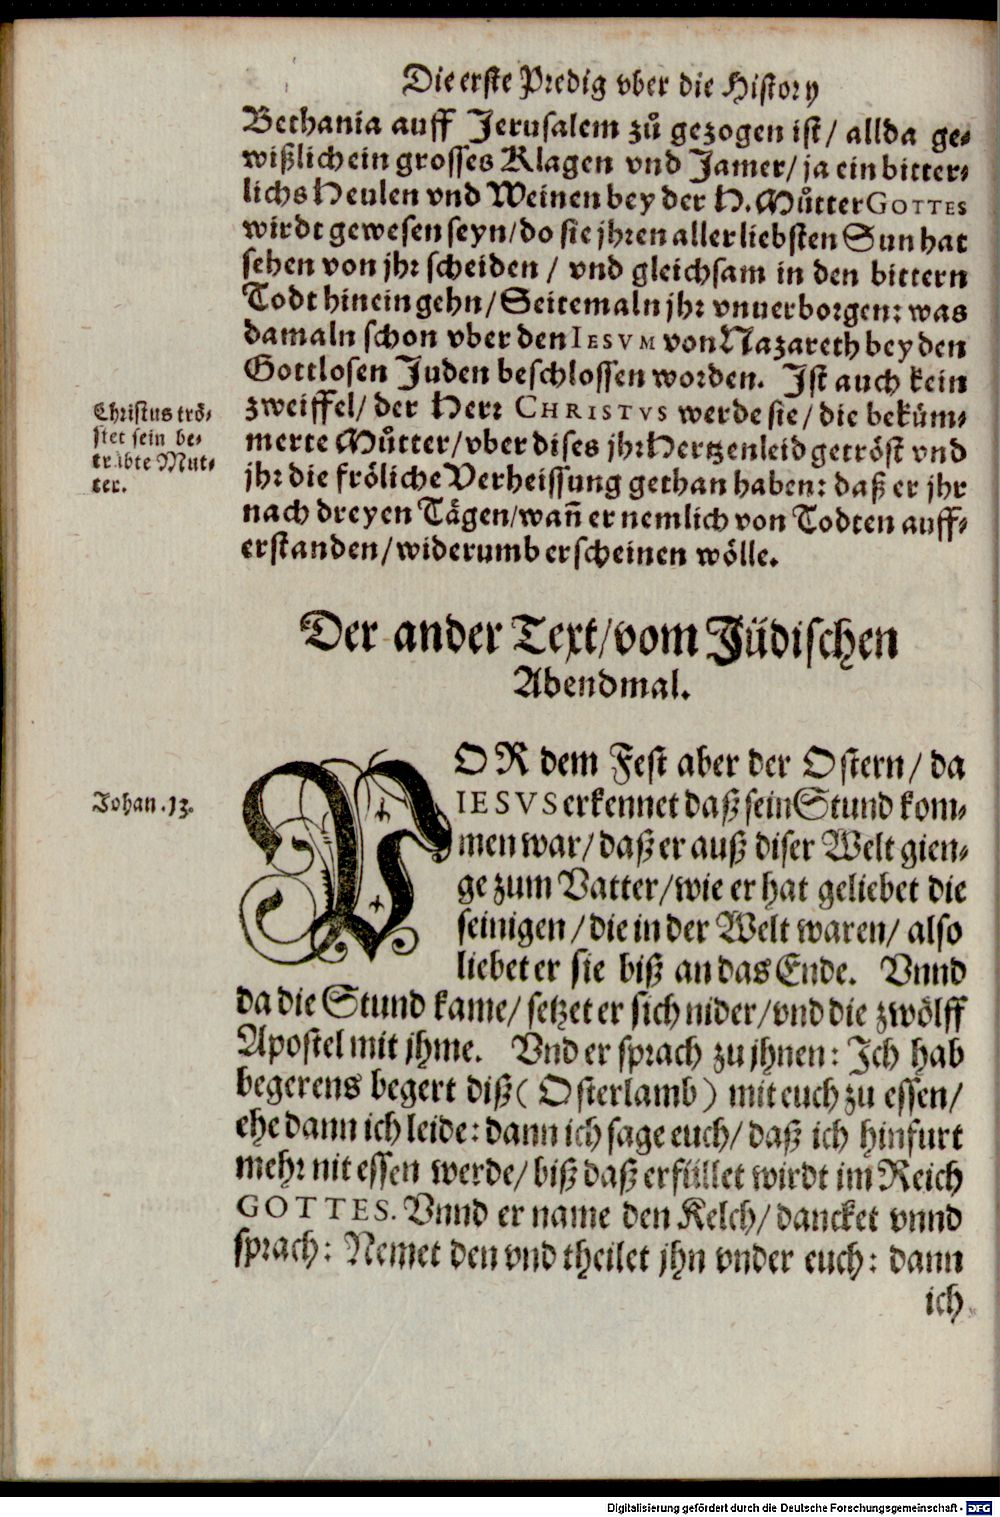 Die erste Predig vber die History
Bethania auff Jerusalem zů gezogen ist/ allda ge-
wißlich ein grosses Klagen vnd Jamer/ ja ein bitter-
lichs Heulen vnd Weinen bey der H. Můtter GOTTES
wirdt gewesen seyn/ do sie jhren allerliebsten Sun hat
sehen von jhr scheiden / vnd gleichsam in den bittern
Todt hinein gehn/ Seitemaln jhr vnuerborgen: was
damaln schon vber den IESVM von Nazareth bey den
Gottlosen Juden beschlossen worden. Ist auch kein
zweiffel/ der Herr CHRISTVS werde sie/ die beküm-
merte Můtter/ vber dises jhr Hertzenleid getröst vnd
jhr die fröliche Verheissung gethan haben: daß er jhr
nach dreyen Tägen/ wañ er nemlich von Todten auff-
erstanden/ widerumb erscheinen wölle.
Christus trö-
stet sein be-
trübte Mut-
ter.
Der ander Text/ vom Jüdischen
Abendmal.
Johan. 13.
VOR dem Fest aber der Ostern/ da
IESVS erkennet daß sein Stund kom-
men war/ daß er auß diser Welt gien-
ge zum Vatter/ wie er hat geliebet die
seinigen / die in der Welt waren/ also
liebet er sie biß an das Ende. Vnnd
da die Stund kame/ setzet er sich nider/ vnd die zwölff
Apostel mit jhme. Vnd er sprach zu jhnen: Ich hab
begerens begert diß ( Osterlamb ) mit euch zu essen/
ehe dann ich leide: dann ich sage euch/ daß ich hinfurt
mehr nit essen werde/ biß daß erfüllet wirdt im Reich
GOTTES. Vnnd er name den Kelch/ dancket vnnd
sprach: Nemet den vnd theilet jhn vnder euch: dann
ich
Digitalisierung gefördert durch die Deutsche Forschungsgemeinschaft - DFG